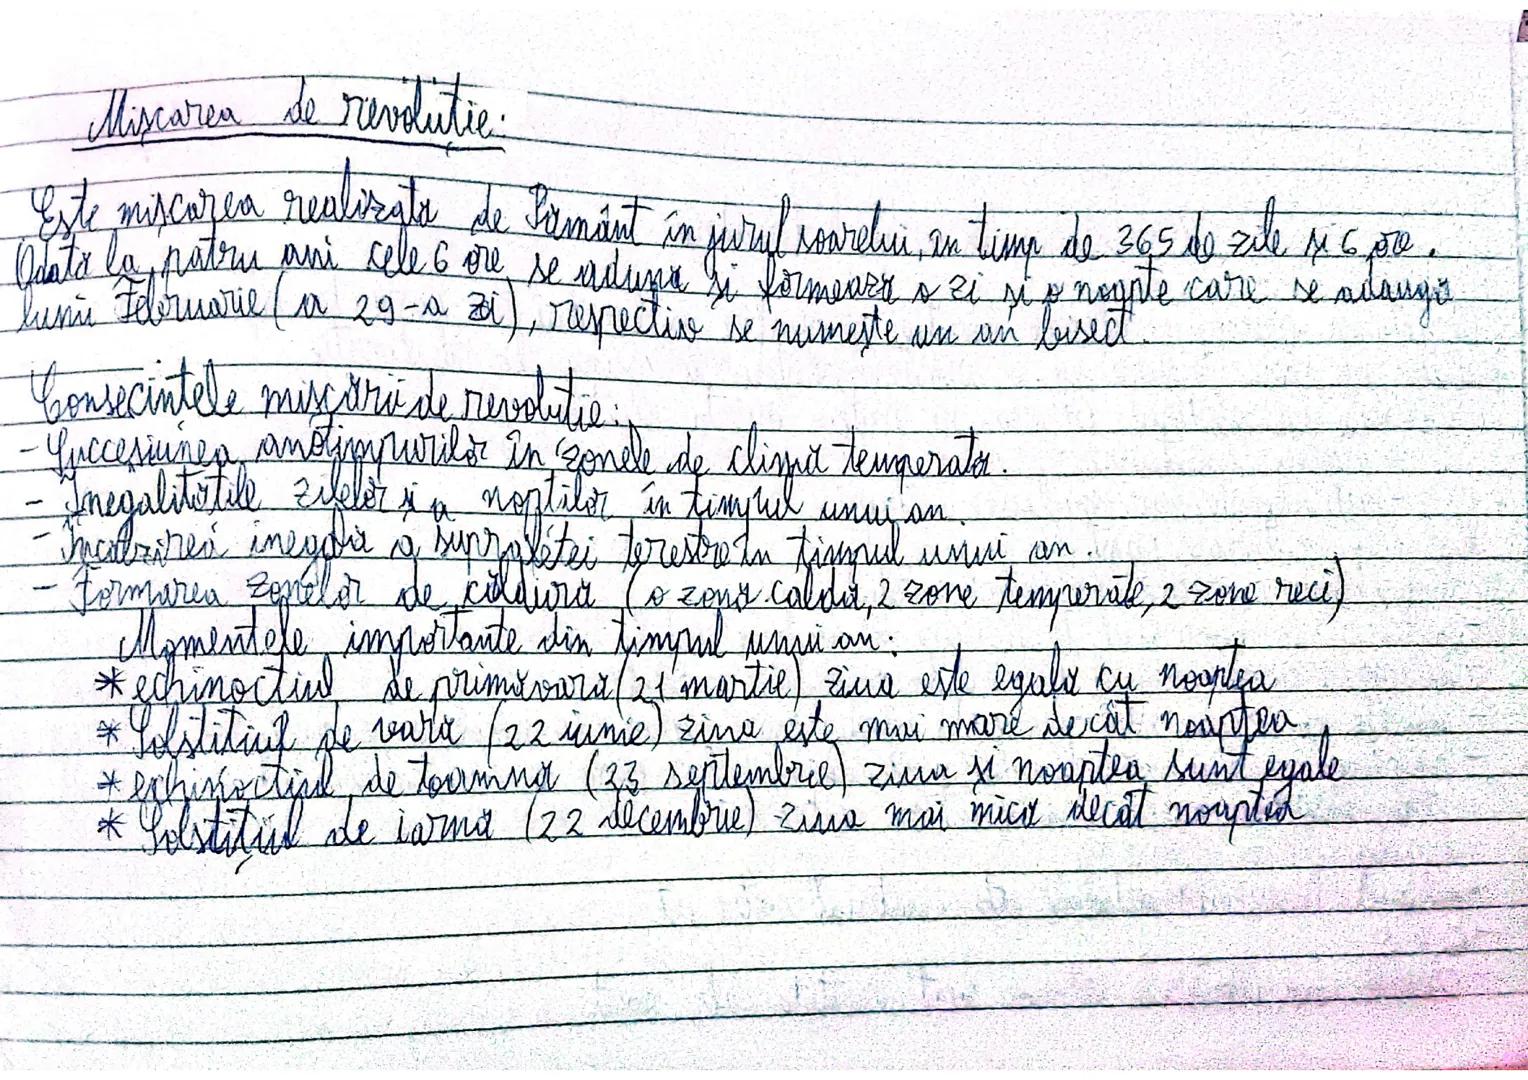 Mișcarea de revoluție:
Este mișcarea realizată de Pământ în jurul soarelui, în timp de 365 de zile și 6 ore.
Odată la patru ani cele 6 ore se adună și formează o zi și o noapte care se adaugă
lunii Februarie (a 29-a zi), respectiv se numește un an bisect.
Consecintele mișcării de revolutie:
- Succesiunea anotimpurilor în zonele de climă temperată.
- Inegalitățile zilelor și a nopților în timpul unui an.
- Încălzirea inegală a suprafeței terestre în timpul unui an.
- Formarea zonelor de căldură (o zonă caldă, 2 zone temperate, 2 zone reci)
Momentele importante din timpul unui an:
* echinocțiul de primăvară (21 martie) ziua este egală cu noaptea
* Solstitiul de vară (22 iunie) ziua este mai mare decât noaptea
* echinoctiul de toamnă (23 septembrie) ziua și noaptea sunt egale
* Solstițiul de iarnă (22 decembrie) ziua mai mică decât noaptea